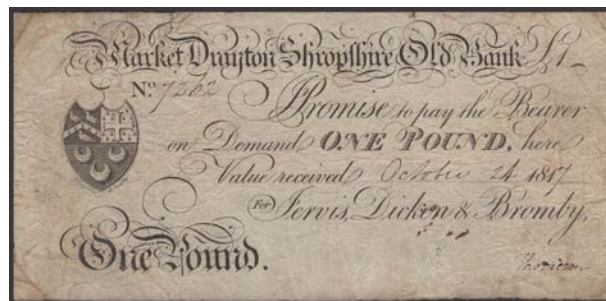 Market Drayton Shropshire Old Bank £1
No. 7262
Promise to pay the Bearer
on Demand ONE POUND. here
Value received October 24 1817
For Jervis, Dicken & Bromby.
One Pound.